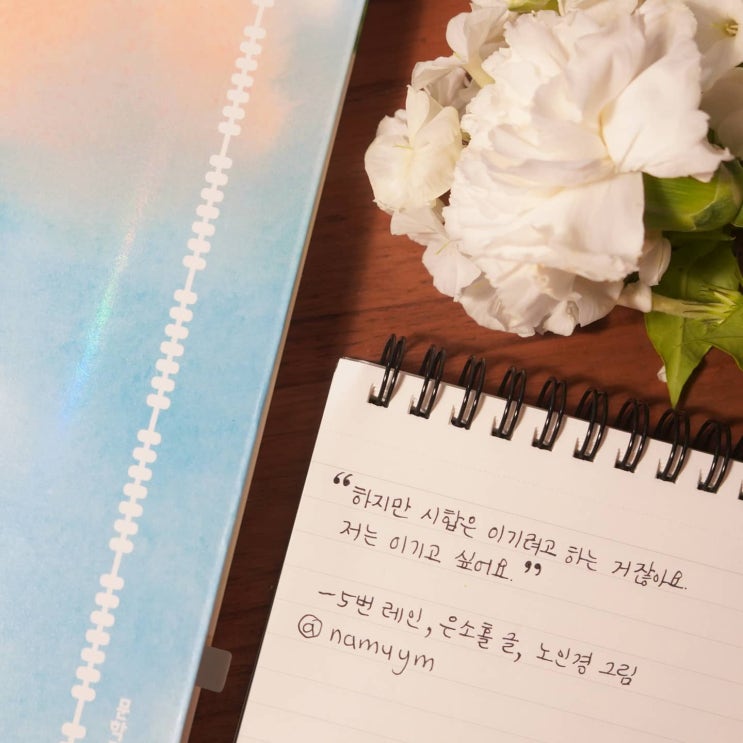 “하지만 시합은 이기려고 하는 거잖아요.
저는 이기고 싶어요.”
-5번 레인, 은소홀 글, 노인경 그림
@namuym
문학